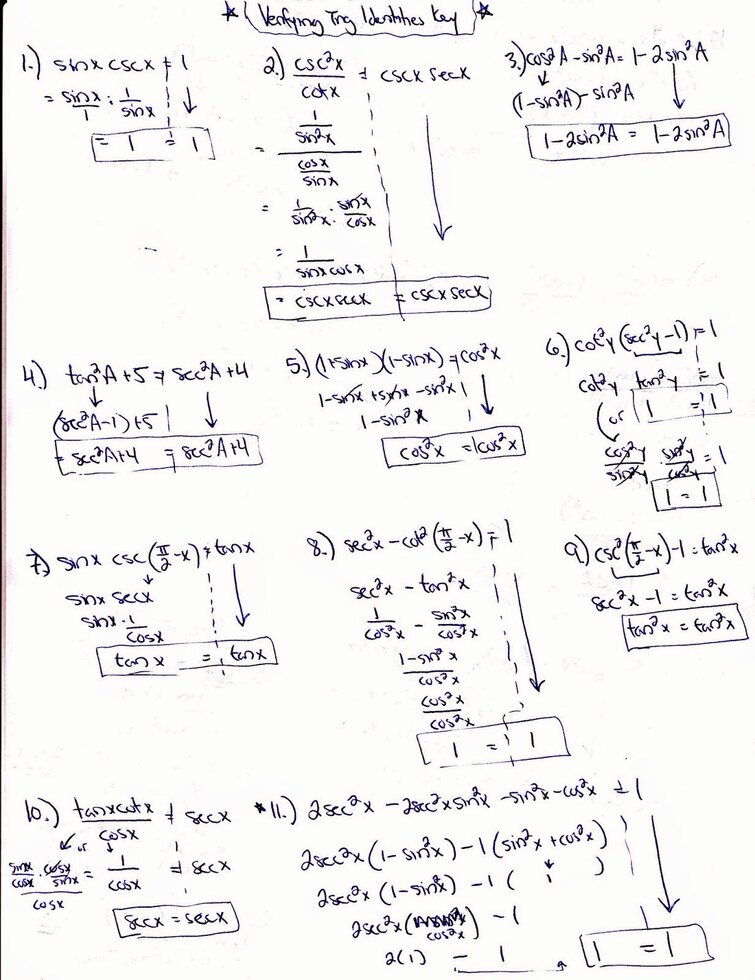 ★ Verifying Trig Identities Key ★
1.) sinx cscx = 1
= sinx/1 · 1/sinx
= 1 = 1
2.) csc²x/cotx = cscx secx
= (1/sin²x)/(cosx/sinx)
= 1/sin²x · sinx/cosx
= 1/sinxcosx
= cscxsecx = cscxsecx
3.) cos²A - sin²A = 1 - 2sin²A
(1-sin²A) - sin²A
1-2sin²A = 1-2sin²A
4.) tan²A+5 = sec²A+4
(sec²A-1)+5
= sec²A+4 = sec²A+4
5.) (1+sinx)(1-sinx) = cos²x
1-sinx+sinx-sin²x
1-sin²x
cos²x = cos²x
6.) cot²y(sec²y-1) = 1
cot²y · tan²y = 1
or 1 = 1
cos²y/sin²y · sin²y/cos²y = 1
1 = 1
7.) sinx csc(π/2-x) = tanx
sinx secx
sinx · 1/cosx
tanx = tanx
8.) sec²x - cot²(π/2-x) = 1
sec²x - tan²x
1/cos²x - sin²x/cos²x
1-sin²x/cos²x
cos²x/cos²x
1 = 1
9.) csc²(π/2-x)-1 = tan²x
sec²x-1 = tan²x
tan²x = tan²x
10.) tanxcotx/cosx = secx
or
(sinx/cosx · cosx/sinx)/cosx = 1/cosx = secx
secx = secx
*11.) 2sec²x - 2sec²xsin²x - sin²x - cos²x = 1
2sec²x(1-sin²x) - 1(sin²x+cos²x)
2sec²x(1-sin²x) - 1( 1 )
2sec²x(cos²x) - 1
2(1) - 1
1 = 1